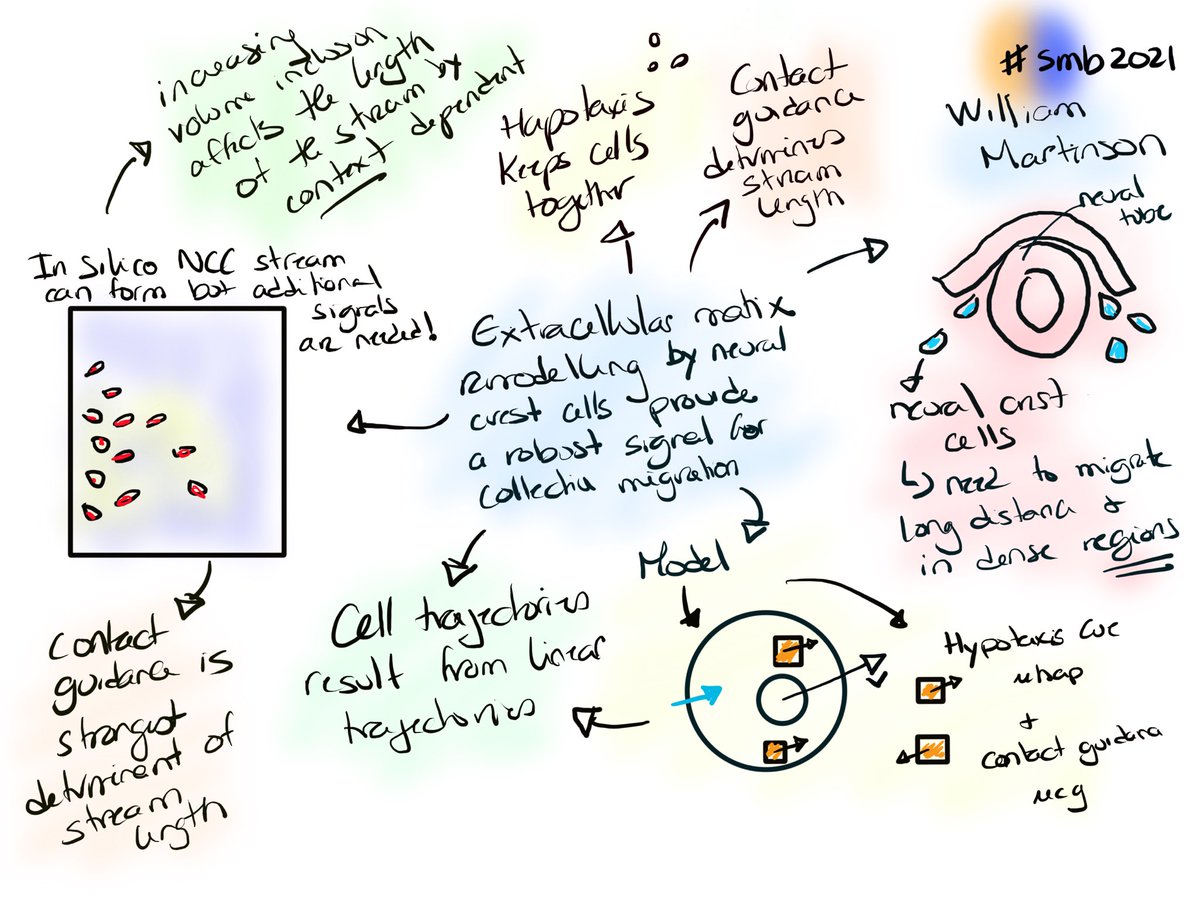 #smb2021
William
Martinson
increasing
volume inclusion
affects the length
of the stream by
context dependent
Hapotaxis
keeps cells
together
Contact
guidance
determines
stream
length
neural
tube
In silico NCC stream
can form but additional
signals
are needed!
Extracellular matrix
remodelling by neural
crest cells provide
a robust signal for
collective migration
neural crest
cells
↳ need to migrate
long distance &
in dense regions
Model
Cell trajectories
result from linear
trajectories
Hypotaxis cue
uhap
&
contact guidance
ucg
Contact
guidance is
strongest
determinent of
stream
length